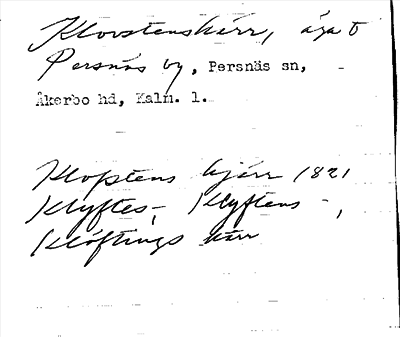 Klovstenskärr, äga t
Persnäs by, Persnäs sn,
Åkerbo hd, Kalm. l.
Klofstens kjärr 1821
Klyftes-, Klyftens -,
Klöftings kärr